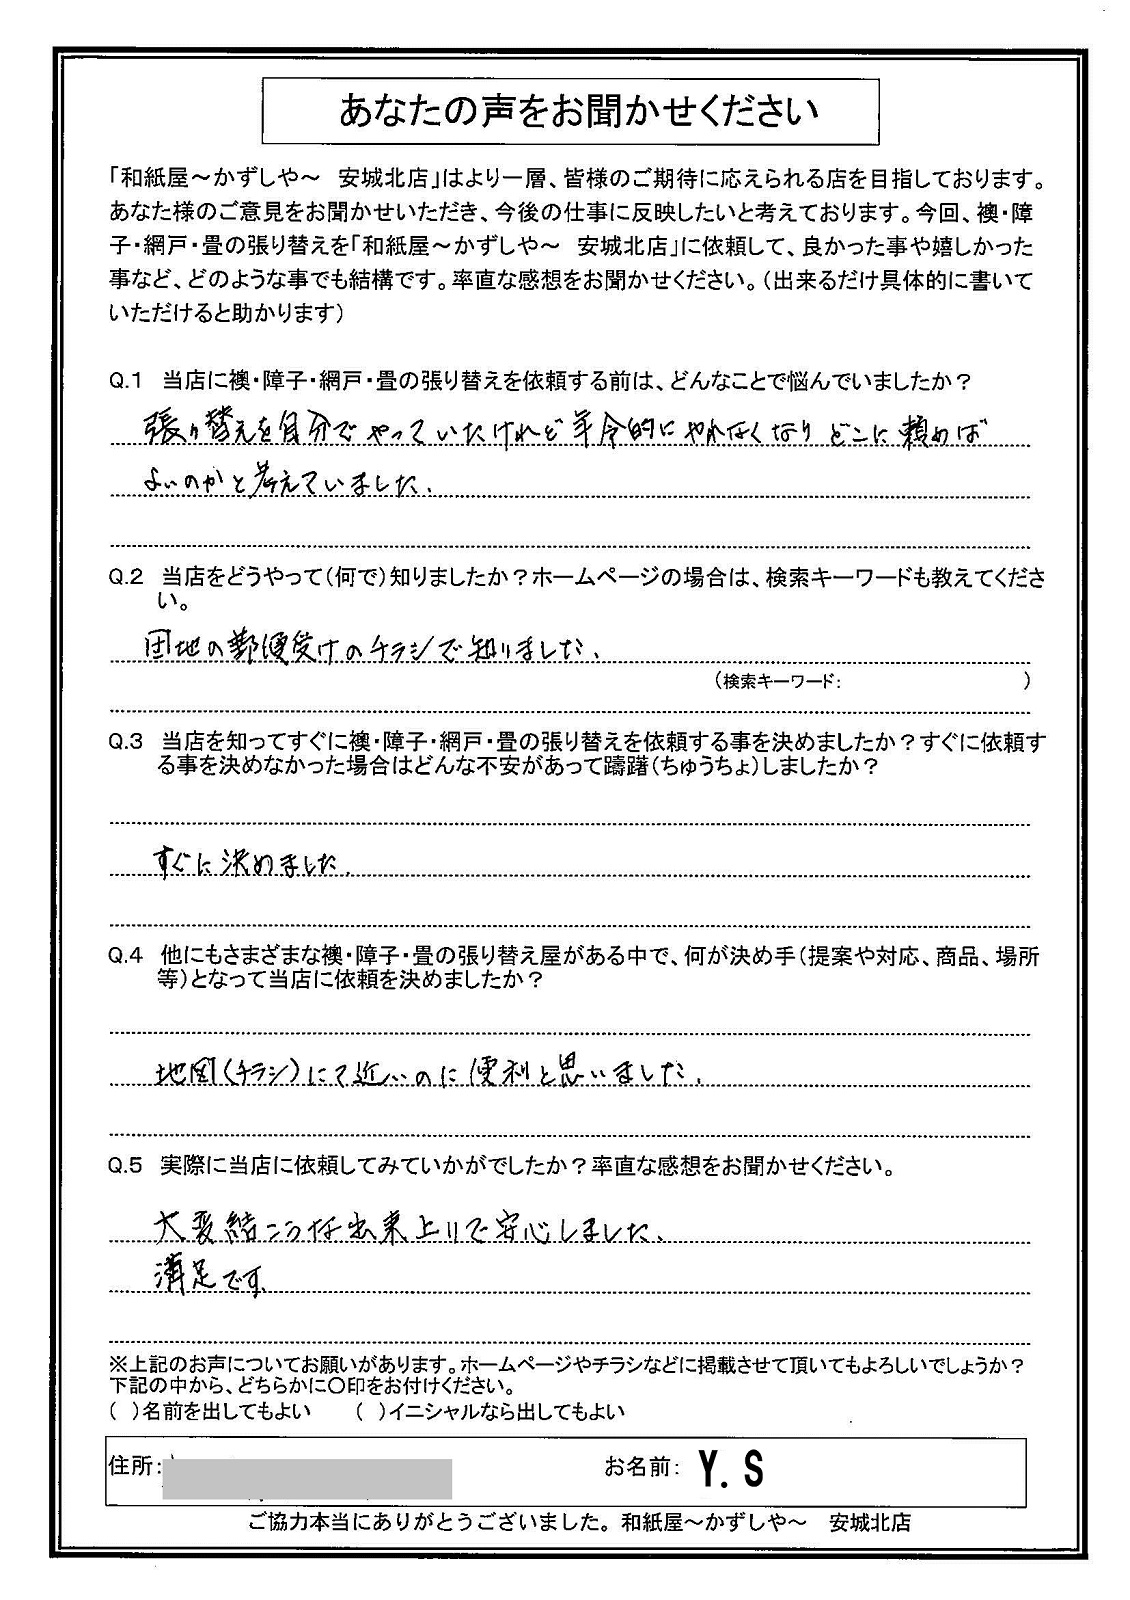 あなたの声をお聞かせください
「和紙屋～かずしや～　安城北店」はより一層、皆様のご期待に応えられる店を目指しております。
あなた様のご意見をお聞かせいただき、今後の仕事に反映したいと考えております。今回、襖・障
子・網戸・畳の張り替えを「和紙屋～かずしや～　安城北店」に依頼して、良かった事や嬉しかった
事など、どのような事でも結構です。率直な感想をお聞かせください。（出来るだけ具体的に書いて
いただけると助かります）
Q.1　当店に襖・障子・網戸・畳の張り替えを依頼する前は、どんなことで悩んでいましたか？
張り替えを自分でやっていたけれど年令的にやれなくなりどこに頼めば
よいのかと考えていました.
Q.2　当店をどうやって（何で）知りましたか？ホームページの場合は、検索キーワードも教えてくださ
い。
団地の郵便受けのチラシで知りました、
（検索キーワード：　　　　　　　　　　）
Q.3　当店を知ってすぐに襖・障子・網戸・畳の張り替えを依頼する事を決めましたか？すぐに依頼す
る事を決めなかった場合はどんな不安があって躊躇（ちゅうちょ）しましたか？
すぐに決めました.
Q.4　他にもさまざまな襖・障子・畳の張り替え屋がある中で、何が決め手（提案や対応、商品、場所
等）となって当店に依頼を決めましたか？
地図（チラシ）にて近いのに便利と思いました.
Q.5　実際に当店に依頼してみていかがでしたか？率直な感想をお聞かせください。
大変結こうな出来上りで安心しました、
満足です、
※上記のお声についてお願いがあります。ホームページやチラシなどに掲載させて頂いてもよろしいでしょうか？
下記の中から、どちらかに〇印をお付けください。
（　）名前を出してもよい　　（　）イニシャルなら出してもよい
住所：　お名前：　Y. S
ご協力本当にありがとうございました。和紙屋～かずしや～　安城北店